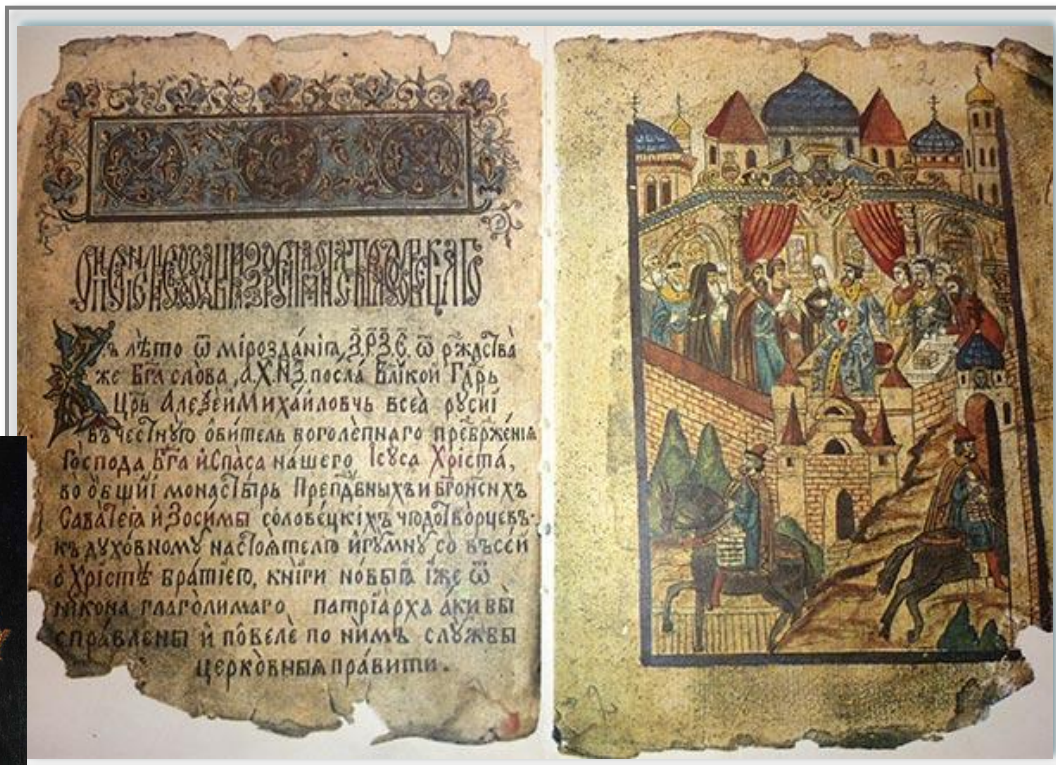 Въ лѣто ѿ мірозда́нїѧ, З҃.Р҃.З҃.Є҃. ѿ ржⷣства̀
же Бг҃а слова, а҃.Х҃.N҃.З҃. посла̀ Влі́кой Гдⷭ҇рь
Цр҃ь Алеѯе́и Миха́йловчь всеѧ̀ русиі
въ че́стнꙋю оби́тель боголѣпнаго преѡбрже́нїѧ
Го́спода Бг҃а и Спа́са на́шего Ісꙋса Хріста̀,
во о́бшиі монасты́рь Препⷣбныхъ и бг҃оно́сныхъ
Сава́теѧ и Зоси́мы солове́цкіхъ чюдотво́рцевъ
къ дꙋхо́вномꙋ настоѧ́телю игꙋ́мнꙋ со въсе́й
о Хрістѣ̀ бра́тїею, кніги но́выѧ і́же ѿ
ни́кона глаголимаго патрїа́рха а́ки бы
спра́влены и повелѐ по ни́мъ слꙋ́жбы
церко́вныѧ пра́вити.